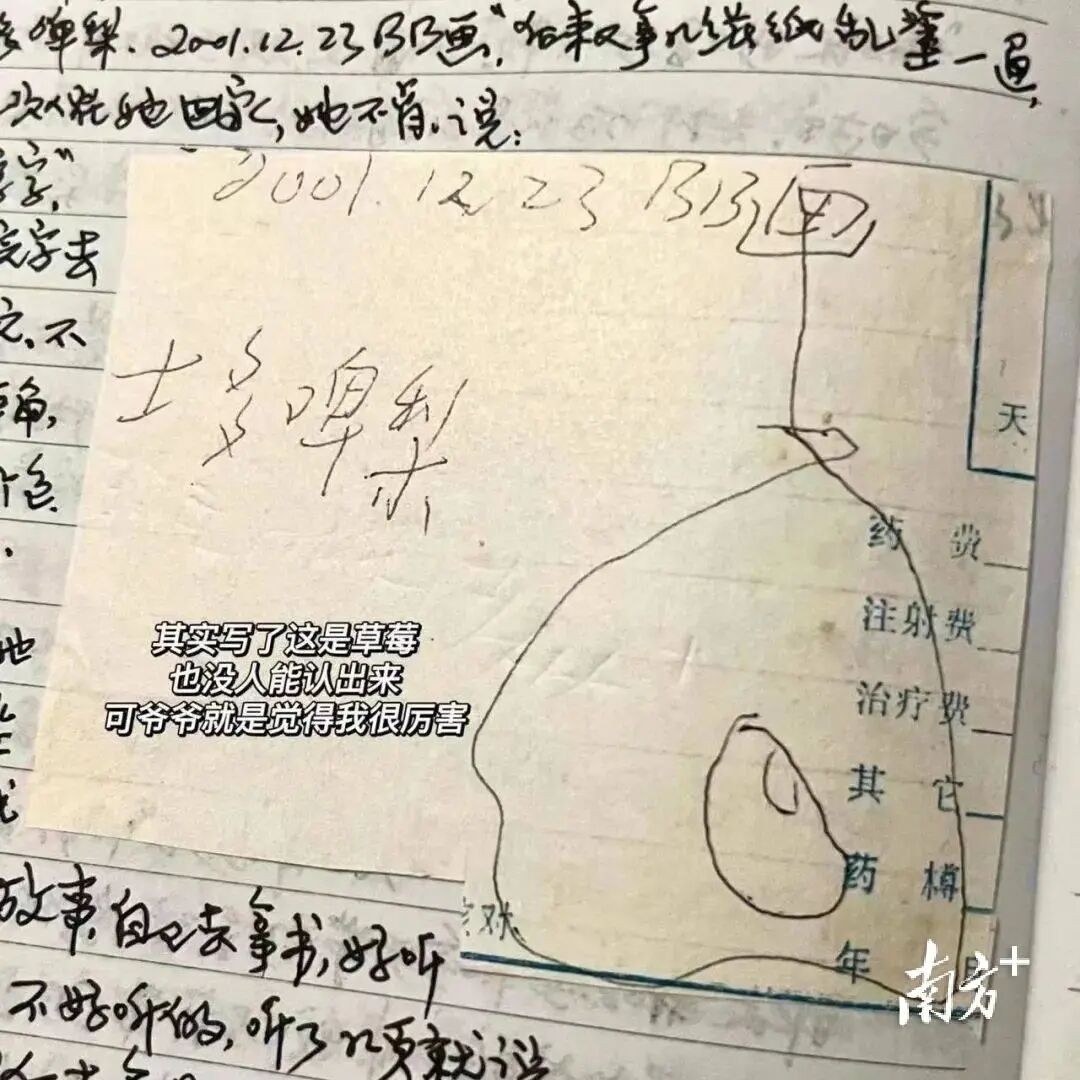 啤梨.2001.12.23BB画,"后来又拿几张纸乱画一通,
她回家,她不肯,说:
2001.12.23 BB画
士多啤梨
天
药 费
注射费
治疗费
其 它
药 樽
年 月
其实写了这是草莓
也没人能认出来
可爷爷就是觉得我很厉害
字"
字去
不
角,
色.
她
故事,自己去拿书,好听
不好听的,听了几页就说
南方+